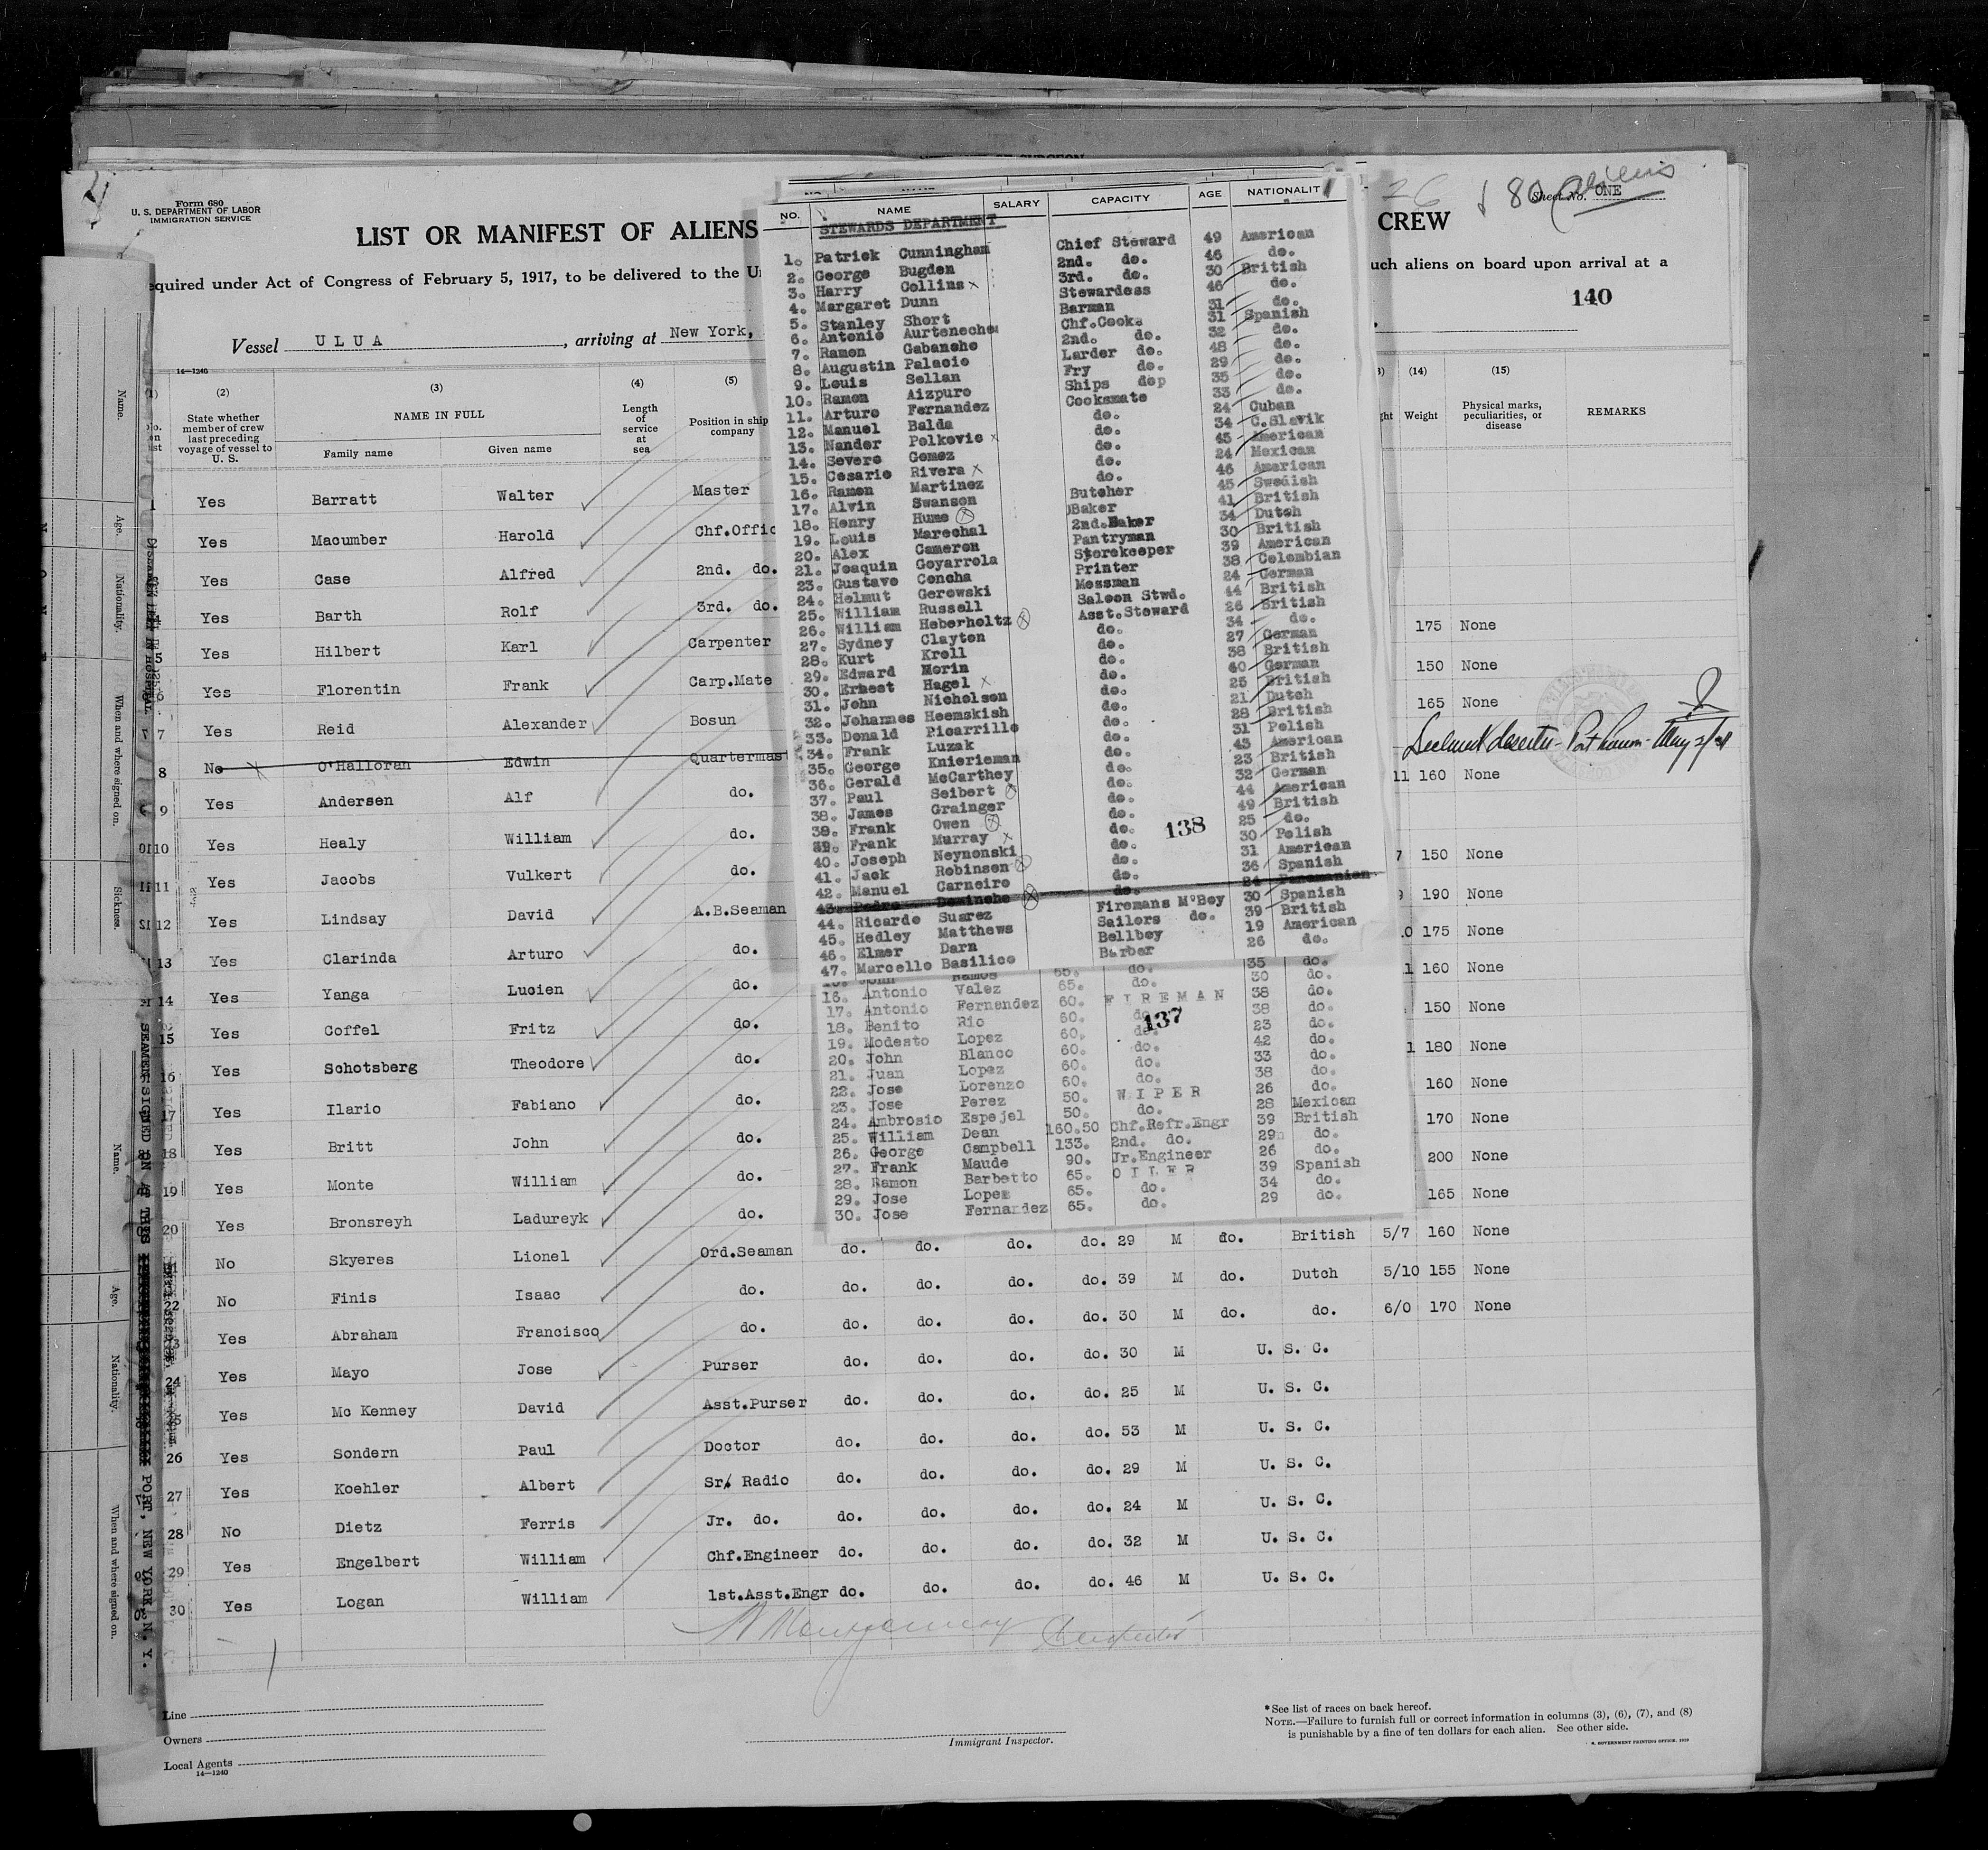 Form 680
U. S. DEPARTMENT OF LABOR
IMMIGRATION SERVICE
LIST OR MANIFEST OF ALIENS
CREW
Sheet No. ONE
80 aliens
equired under Act of Congress of February 5, 1917, to be delivered to the U
uch aliens on board upon arrival at a
140
Vessel ULUA, arriving at New York,
14—1240
(2) (3) (4) (5) (14) (15)
State whether member of crew last preceding voyage of vessel to U. S.
NAME IN FULL
Family name Given name
Length of service at sea
Position in ship company
Weight
Physical marks, peculiarities, or disease
REMARKS
1 Yes Barratt Walter Master
Yes Macumber Harold Chf.Offic
Yes Case Alfred 2nd. do.
Yes Barth Rolf 3rd. do.
5 Yes Hilbert Karl Carpenter 175 None
6 Yes Florentin Frank Carp.Mate 150 None
7 Yes Reid Alexander Bosun 165 None
8 No O'Halloran Edwin Quartermast
9 Yes Andersen Alf do. 11 160 None
10 Yes Healy William do.
11 Yes Jacobs Vulkert do. 7 150 None
12 Yes Lindsay David A.B.Seaman 9 190 None
13 Yes Clarinda Arturo do. 10 175 None
14 Yes Yanga Lucien do. 1 160 None
15 Yes Coffel Fritz do. 150 None
16 Yes Schotsberg Theodore do. 1 180 None
17 Yes Ilario Fabiano do. 160 None
18 Yes Britt John do. 170 None
19 Yes Monte William do. 200 None
20 Yes Bronsreyh Ladureyk do. 165 None
No Skyeres Lionel Ord.Seaman do. do. do. do. 29 M do. British 5/7 160 None
22 No Finis Isaac do. do. do. do. do. 39 M do. Dutch 5/10 155 None
Yes Abraham Francisco do. do. do. do. do. 30 M do. do. 6/0 170 None
24 Yes Mayo Jose Purser do. do. do. do. 30 M U. S. C.
Yes Mc Kenney David Asst.Purser do. do. do. do. 25 M U. S. C.
26 Yes Sondern Paul Doctor do. do. do. do. 53 M U. S. C.
27 Yes Koehler Albert Sr. Radio do. do. do. do. 29 M U. S. C.
28 No Dietz Ferris Jr. do. do. do. do. do. 24 M U. S. C.
29 Yes Engelbert William Chf.Engineer do. do. do. do. 32 M U. S. C.
30 Yes Logan William 1st.Asst.Engr do. do. do. do. 46 M U. S. C.
NO. NAME SALARY CAPACITY AGE NATIONALIT
STEWARDS DEPARTMENT
1. Patrick Cunningham Chief Steward 49 American
2. George Bugden 2nd. do. 46 do.
3. Harry Collins 3rd. do. 30 British
4. Margaret Dunn Stewardess 46 do.
5. Stanley Short Barman 31 do.
6. Antonio Aurteneche Chf.Cook 31 Spanish
7. Ramon Gabancho 2nd. do. 32 do.
8. Augustin Palacio Larder do. 48 do.
9. Louis Sellan Fry do. 29 do.
10. Ramon Aizpuro Ships do 35 do.
11. Arturo Fernandez Cooksmate 33 do.
12. Manuel Balda do. 24 Cuban
13. Nander Polkovic do. 34 C.Slavik
14. Severo Gomez do. 45 American
15. Cesario Rivera do. 24 Mexican
16. Ramon Martinez do. 46 American
17. Alvin Swanson Butcher 45 Swedish
18. Henry Hume Baker 41 British
19. Louis Marechal 2nd.Baker 34 Dutch
20. Alex Cameron Pantryman 30 British
21. Joaquin Goyarrola Storekeeper 39 American
23. Gustavo Concha Printer 38 Colombian
24. Helmut Gerowski Messman 24 German
25. William Russell Saloon Stwd. 44 British
26. William Heberholtz Asst.Steward 26 British
27. Sydney Clayton do. 34 do.
28. Kurt Kroll do. 27 German
29. Edward Morin do. 38 British
30. Ernest Hagel do. 40 German
31. John Nicholson do. 25 British
32. Johannes Heemskish do. 21 Dutch
33. Donald Picarrillo do. 28 British
34. Frank Luzak do. 31 Polish
35. George Knierieman do. 43 American
36. Gerald McCarthey do. 23 British
37. Paul Seibert do. 32 German
38. James Grainger do. 44 American
38. Frank Owen do. 49 British
39. Frank Murray do. 25 do.
40. Joseph Neynonski do. 30 Polish
41. Jack Robinson do. 31 American
42. Manuel Carneiro do. 36 Spanish
43. Pedro Dominche do. 24 Panamanian
44. Ricardo Suarez Firemans M'Boy 30 Spanish
45. Hedley Matthews Sailors do. 39 British
46. Elmer Darn Bellboy 19 American
47. Marcello Basilico Barber 26 do.
138
John Ramos 55. do. 35 do.
16. Antonio Valez 65. do. 30 do.
17. Antonio Fernandez 60. FIREMAN 38 do.
18. Benito Rio 60. do. 38 do.
19. Modesto Lopez 60. do. 23 do.
20. John Blanco 60. do. 42 do.
21. Juan Lopez 60. do. 33 do.
22. Jose Lorenzo 60. do. 38 do.
23. Jose Perez 50. WIPER 26 do.
24. Ambrosio Espejel 50. do. 28 Mexican
25. William Dean 160.50 Chf.Refr.Engr 39 British
26. George Campbell 133. 2nd. do. 29 do.
27. Frank Maude 90. Jr.Engineer 26 do.
28. Ramon Barbetto 65. OILER 39 Spanish
29. Jose Lopez 65. do. 34 do.
30. Jose Fernandez 65. do. 29 do.
137
Declared deserter - Port Limon - May 2/31
Line
Owners
Local Agents
14—1240
Immigrant Inspector.
*See list of races on back hereof.
NOTE.—Failure to furnish full or correct information in columns (3), (6), (7), and (8)
is punishable by a fine of ten dollars for each alien. See other side.
Name.
Age.
Nationality.
When and where signed on.
Sickness.
Name.
Age.
Nationality.
When and where signed on.
SEAMEN SIGNED ON AT THIS PORT, NEW YORK, N. Y.